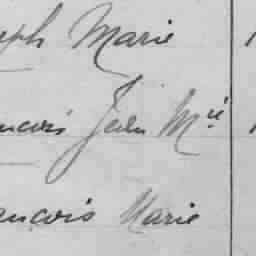 eph Marie
ncois Jean Mie
ancois Marie